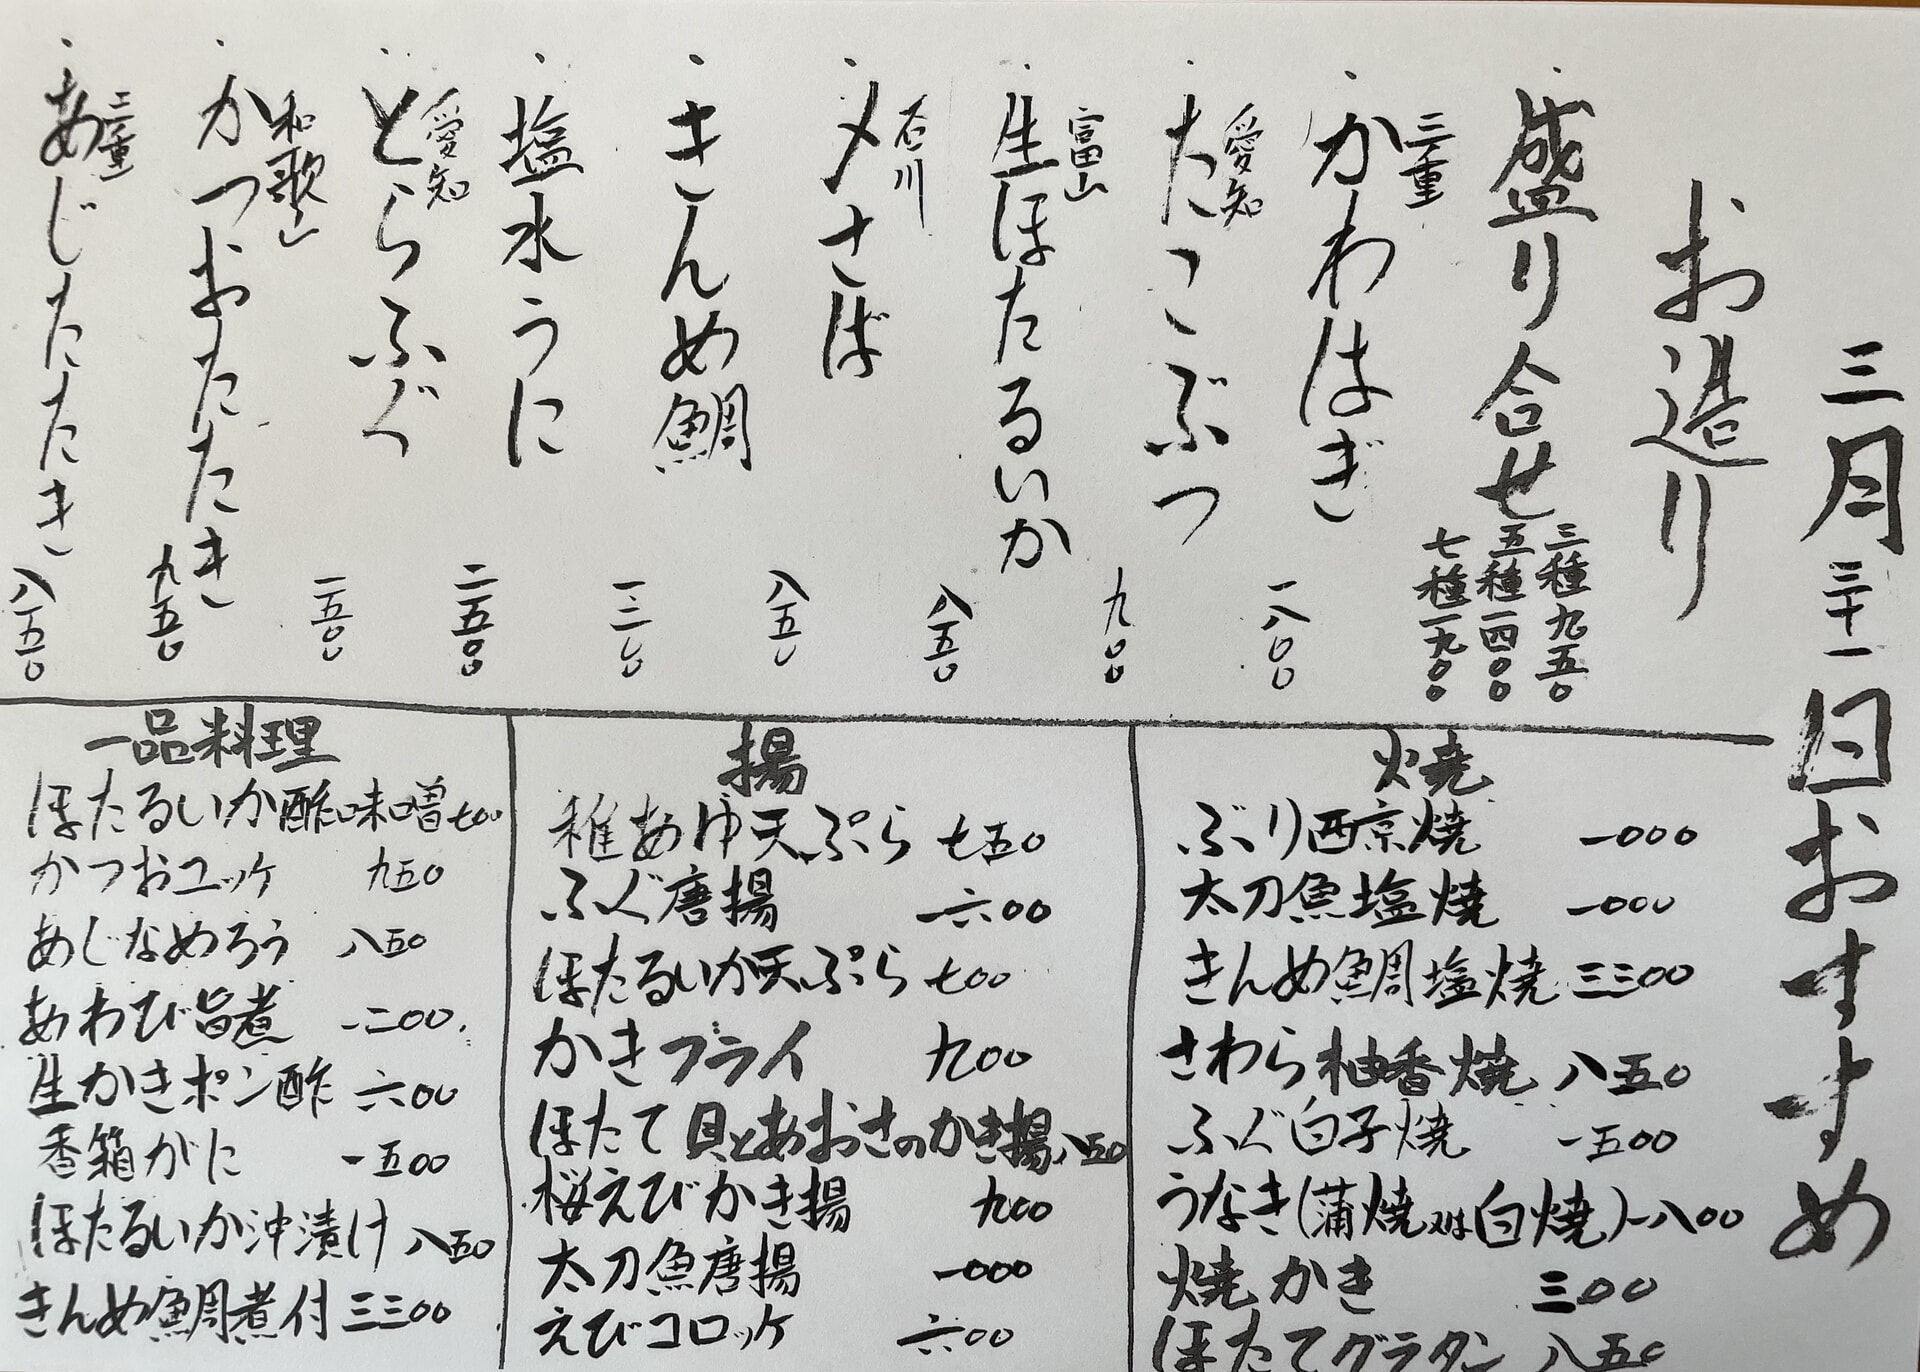 三月三十一日おすすめ
お造り
盛り合せ
三種九五〇
五種一四〇〇
七種一九〇〇
三重
・かわはぎ 一八〇〇
愛知
・たこぶつ 九〇〇
富山
・生ほたるいか 八五〇
石川
・〆さば 八五〇
・きんめ鯛
・塩水うに 二五〇〇
愛知
・とらふぐ 一五〇〇
和歌山
・かつおたたき 九五〇
三重
・あじたたき 八五〇
焼
ぶり西京焼 一〇〇〇
太刀魚塩焼 一〇〇〇
きんめ鯛塩焼 三三〇〇
さわら柚香焼 八五〇
ふぐ白子焼 一五〇〇
うなき(蒲焼又は白焼)一八〇〇
焼かき 三〇〇
ほたてグラタン 八五〇
揚
稚あゆ天ぷら 七五〇
ふぐ唐揚 一六〇〇
ほたるいか天ぷら 七〇〇
かきフライ 九〇〇
ほたて貝とあおさのかき揚 八五〇
桜えびかき揚 九〇〇
太刀魚唐揚 一〇〇〇
えびコロッケ 六〇〇
一品料理
ほたるいか酢味噌 七〇〇
かつおユッケ 九五〇
あじなめろう 八五〇
あわび旨煮 一二〇〇
生かきポン酢 六〇〇
香箱がに 一五〇〇
ほたるいか沖漬け 八五〇
きんめ鯛煮付 三三〇〇